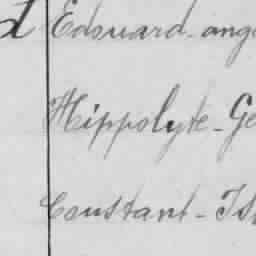 L Edouard - ang
Hippolyte - Ge
Constant - Is